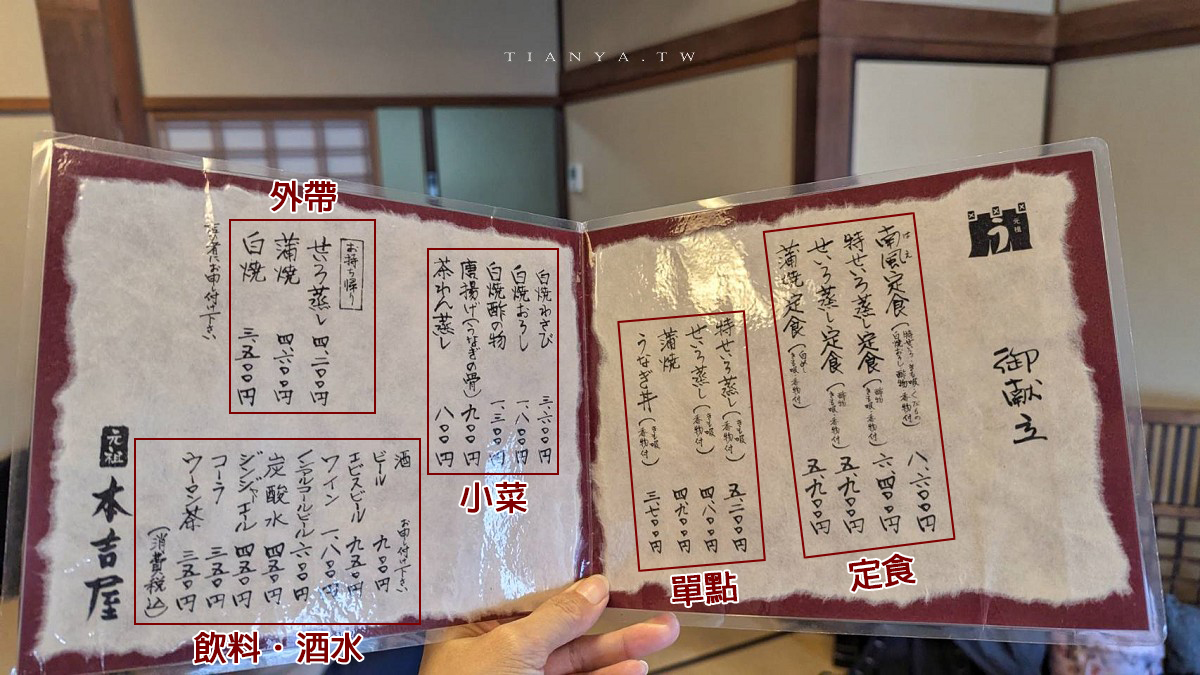 TIANYA.TW
元祖
う
御献立
はえ
南風定食(特せいろ・きも吸・くだもの
白焼おろし・酢物・香物付) 八、六〇〇円
特せいろ蒸し定食(酢物
きも吸・香物付) 六、四〇〇円
せいろ蒸し定食(酢物
きも吸・香物付) 五、九〇〇円
蒲焼定食(白めし
きも吸・香物付) 五、九〇〇円
定食
特せいろ蒸し(きも吸
香物付) 五、二〇〇円
せいろ蒸し(きも吸
香物付) 四、八〇〇円
蒲焼 四、九〇〇円
うなぎ丼(きも吸
香物付) 三、七〇〇円
單點
白焼わさび 三、六〇〇円
白焼おろし 一、八〇〇円
白焼酢の物 一、三〇〇円
唐揚げ(うなぎの骨) 九〇〇円
茶わん蒸し 八〇〇円
小菜
外帶
お持ち帰り
せいろ蒸し 四、二〇〇円
蒲焼 四、六〇〇円
白焼 三、五〇〇円
にお申し付け下さい
酒 お申付け下さい
ビール 九〇〇円
エビスビール 九五〇円
ワイン 一、八〇〇円
ノンアルコールビール 六〇〇円
炭酸水 四五〇円
ジンジャエール 四五〇円
コーラ 三五〇円
ウーロン茶 三五〇円
(消費税込)
飲料・酒水
元祖
本吉屋